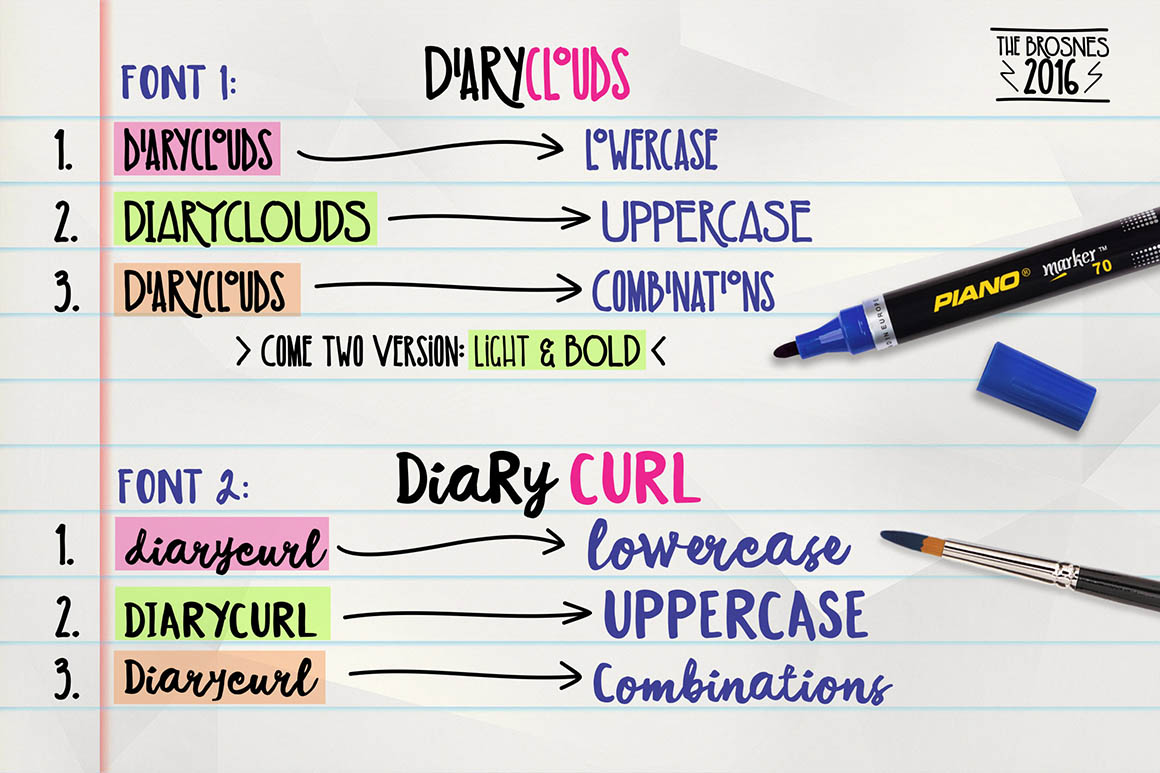 THE BROSNES
2016
FONT 1:
DIARYCLOUDS
1. DIARYCLOUDS LOWERCASE
2. DIARYCLOUDS UPPERCASE
3. DIARYCLOUDS COMBINATIONS
> COME TWO VERSION: LIGHT & BOLD <
PIANO® marker™ 70
DIN EUROPE
FONT 2:
DiaRy CURL
1. diarycurl lowercase
2. DIARYCURL UPPERCASE
3. Diarycurl Combinations